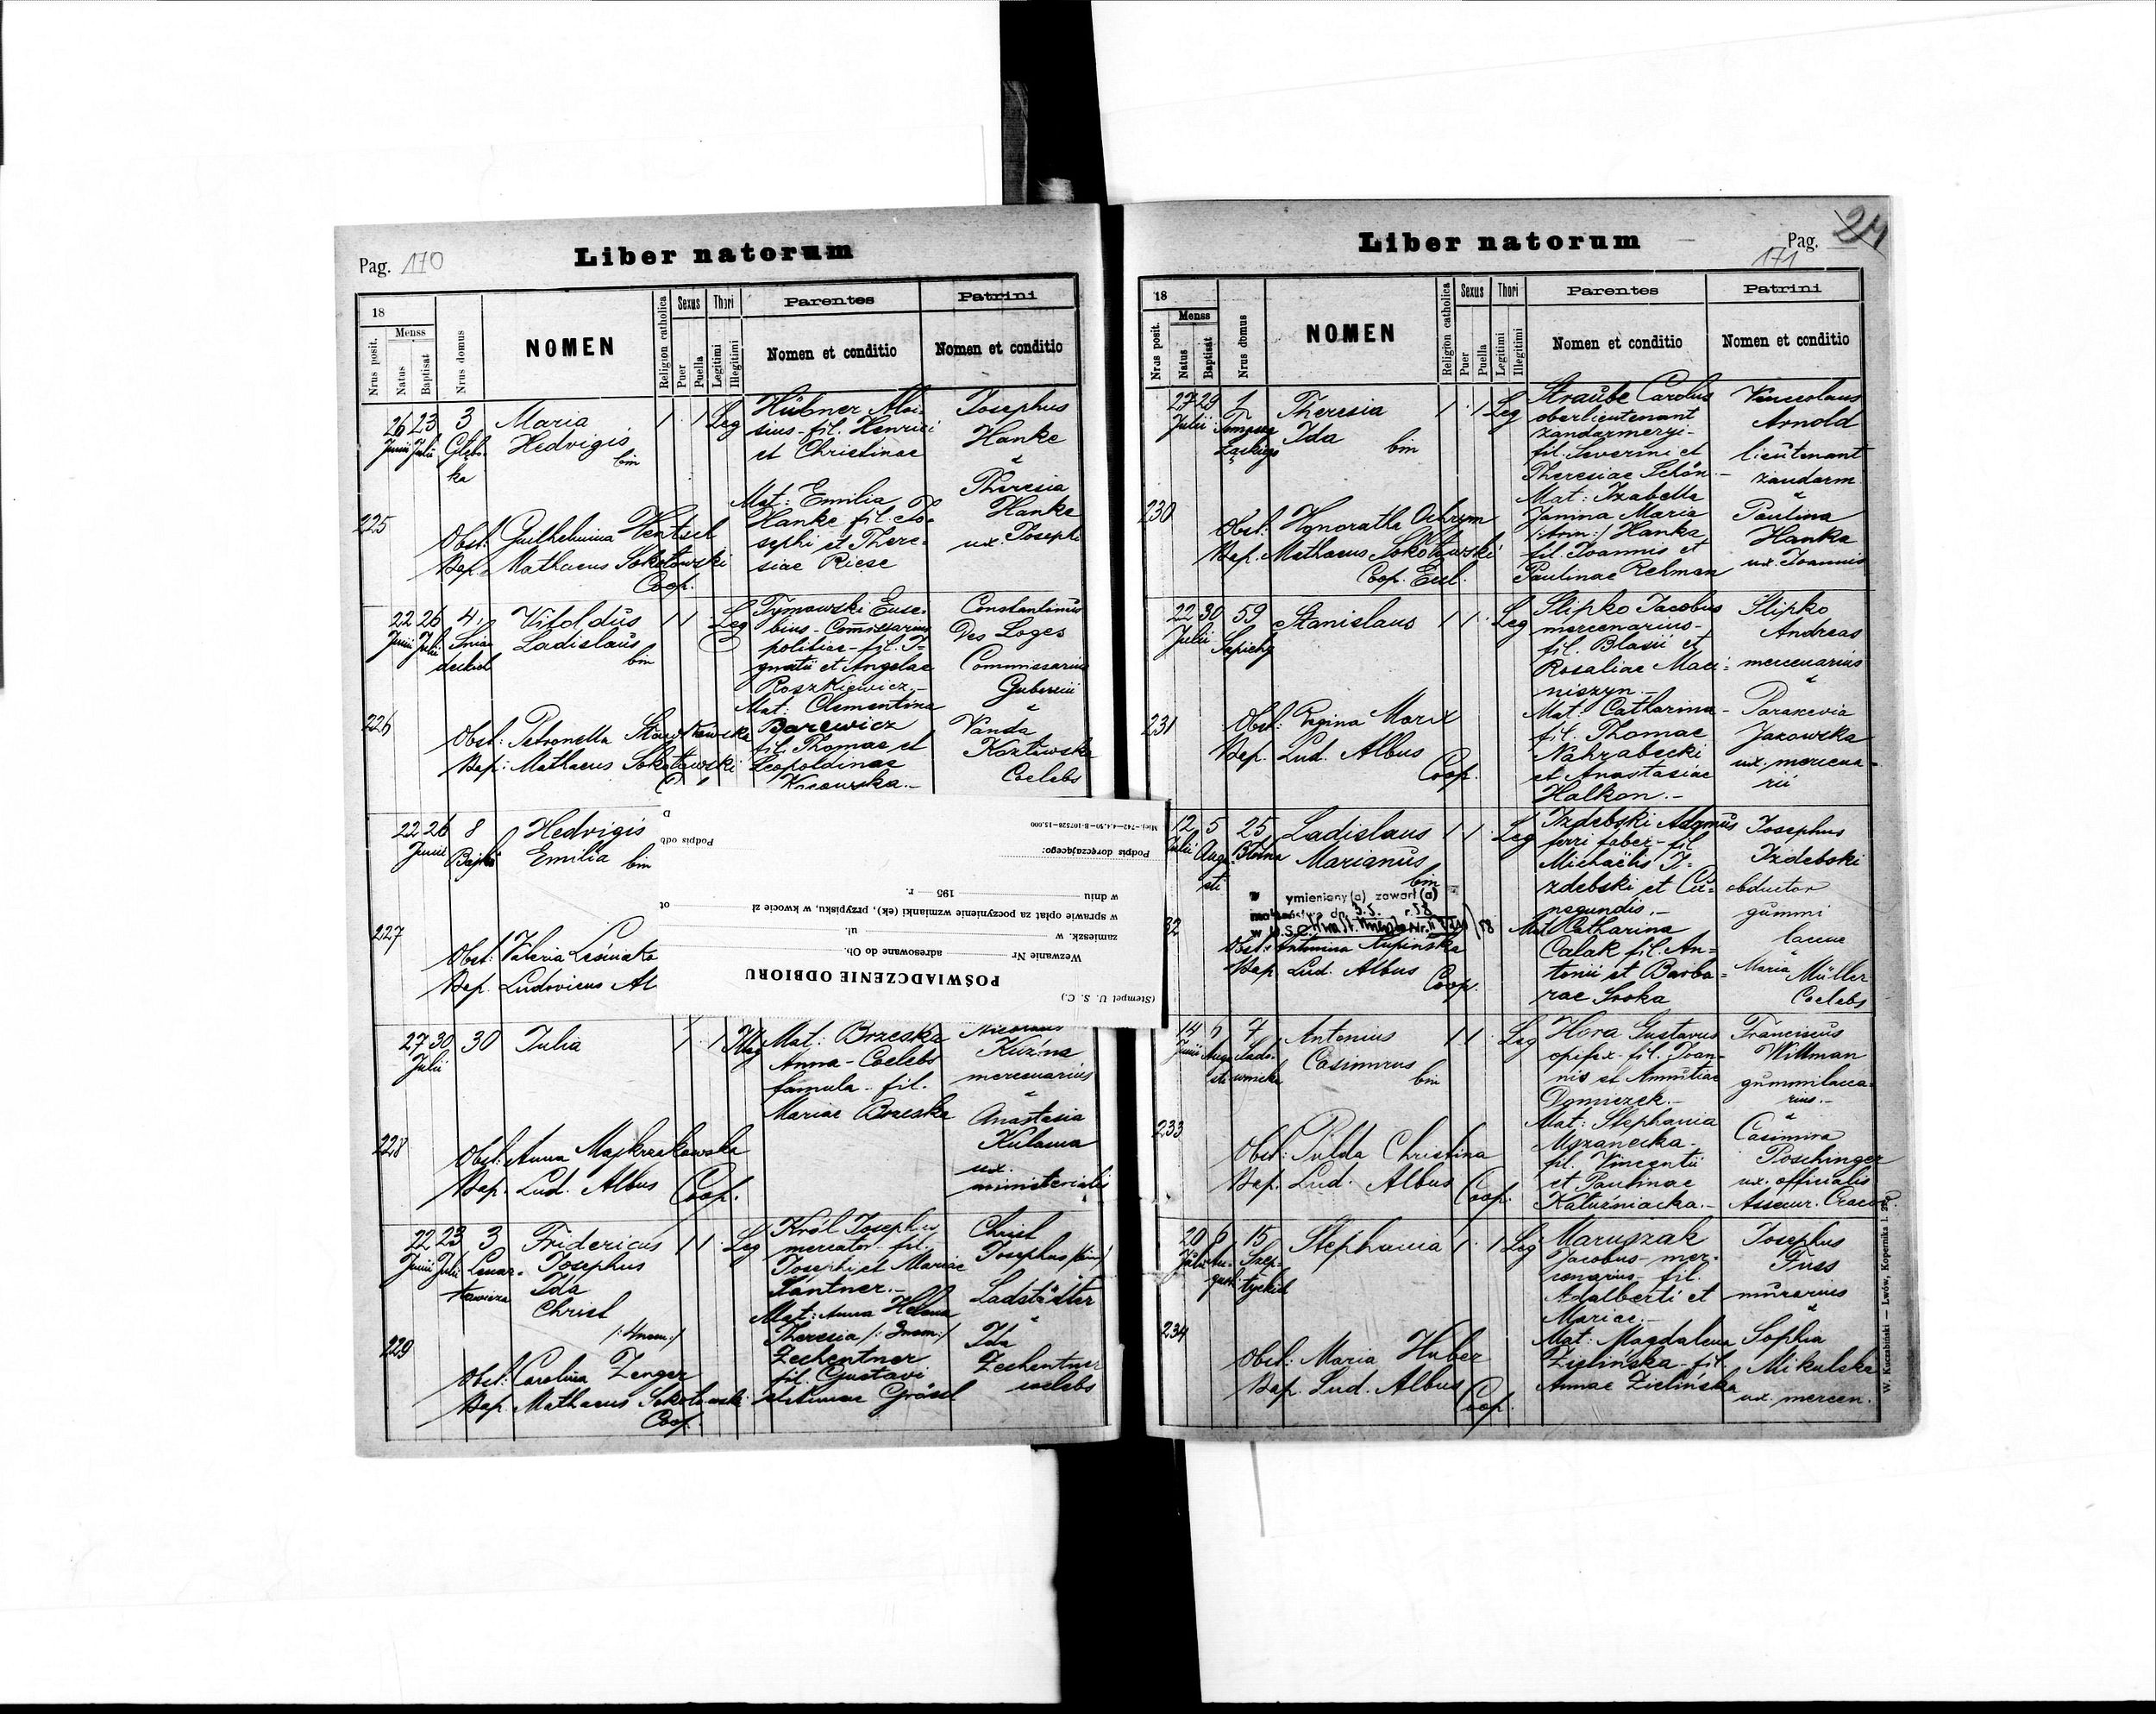 Pag. 170
Liber natorum
18
Menss
Nrus posit.
Natus
Baptisat
Nrus domus
NOMEN
Religion catholica
Sexus
Puer
Puella
Thori
Legitimi
Illegitimi
Parentes
Nomen et conditio
Patrini
Nomen et conditio
225
26 23 3
Junii Julii
Maria
Hedvigis
bin
1 1 Leg
Hübner Aloi-
sius - fil. Henrici
et Christinae
Mat: Emilia
Hanke fil. Jo-
sephi et There-
siae Riese
Josephus
Hanke
Theresia
Hanke
ux. Josephi
Obst: Guilhelmina Hentsel
Bap. Mathaeus Sokołowski
Coop.
226
22 26 4.
Junii Julii
Vitoldus
Ladislaus
bin
1 1 Leg
Tymowski Euse-
bius - Commissarius
politiae - fil. I-
gnatii et Angelae
Roszkiewicz.-
Mat: Clementina
Barewicz
fil. Thomae et
Leopoldinae
Kosowska.-
Constantinus
Des Loges
Commissarius
Gubernii
Vanda
Kozłowska
Coelebs
Obst: Petronella
Bap: Mathaeus Sokołowski
227
22 26 8
Junii
Hedvigis
Emilia
bin
Obst: Valeria
Bap. Ludovicus Al
(Stempel U. S. C.)
POŚWIADCZENIE ODBIORU
Wezwanie Nr adresowane do Ob.
zamieszk. w ul.
w sprawie opłat za poczynienie wzmianki (ek), przypisku, w kwocie zł ot
w dniu 195 r.
Podpis doręczającego:
Podpis odb
228
27 30 30
Julii
Julia
1 1 Illeg
Mat: Brzeska
Anna - Coelebs
famula - fil.
Mariae Brzeska
Kuźna
mercenarius
Anastasia
Kulawa
ux.
ministerialis
Obst: Anna Majkrzakowska
Bap. Lud. Albus Coop.
229
22 23 3
Junii Julii
Fridericus
Josephus
Ida
Christ
/:4nom:/
1 1 Leg
Król Josephus
mercator - fil.
Josephi et Mariae
Lantner.-
Mat: Anna Helena
Theresia /:3nom:/
Zechentner
fil. Gustavi
et Annae Grösel
Christ
Josephus /bin/
Ladstädter
Ida
Zechentner
coelebs
Obst: Carolina Zenger
Bap. Mathaeus Sokołowski
Coop.
Liber natorum
Pag. 171
18
Menss
Nrus posit.
Natus
Baptisat
Nrus domus
NOMEN
Religion catholica
Sexus
Puer
Puella
Thori
Legitimi
Illegitimi
Parentes
Nomen et conditio
Patrini
Nomen et conditio
230
27 29 1
Julii
Theresia
Ida
bin
1 1 Leg
Straube Carolus
oberlieutenant
żandarmeryi-
fil. Severini et
Theresiae Schön -
Mat: Izabella
Janina Maria
Hanka
fil. Joannis et
Paulinae Rehman
Venceslaus
Arnold
lieutenant
żandarm
Paulina
Hanka
ux. Joannis
Obst: Honoratha Ochrym
Bap. Mathaeus Sokołowski
Coop. Eccl.
231
22 30 59
Julii Sapiehy
Stanislaus
1 1 Leg
Slipko Jacobus
mercenarius-
fil. Blasii et
Rosaliae Maci-
niszyn -
Mat: Catharina -
fil. Thomae
Nahrabecki
et Anastasiae
Halkon.-
Slipko
Andreas
mercenarius
Parascevia
Jazowska
ux. mercena-
rii
Obst: Regina Marix
Bap. Lud. Albus
Coop.
12 5 25
Julii Augu-
sti
Ladislaus
Marianus
bin
1 1 Leg
Izdebski Adamus
ferri faber - fil
Michaëlis I-
zdebski et Cu-
negundis.-
Mat Katharina
Calak fil. An-
tonii et Barba-
rae Sroka
Josephus
Izdebski
obductor
gummi
laccae
Maria Müller
Coelebs
ymieniony (a) zawarł (a)
Obst: Antonina Kupińska
Bap. Lud. Albus
Coop.
233
14 6 7
Junii
Antonius
Casimirus
bin
1 1 Leg
Hora Gustavus
opifex - fil. Joan-
nis et
Mat: Stephania
fil. Vincentii
et Paulinae
Kałuźniacka.-
Franciscus
Willman
gummilacca-
rius.-
Casimira
Poschinger
ux. officialis
Assecur. Cracov.
Obst: Pulda Christina
Bap. Lud. Albus Coop.
234
20 6 15
Stephania
1 1 Leg
Maruszak
Jacobus - mer-
cenarius - fil.
Adalberti et
Mariae.-
Mat: Magdalena
Zielińska - fil.
Annae Zielińska
Josephus
Fuss
murarius
Sophia
Mikulska
ux. mercen.
Obst: Maria Huber
Bap. Lud. Albus Coop.
W. Kuczabiński — Lwów, Kopernika l.